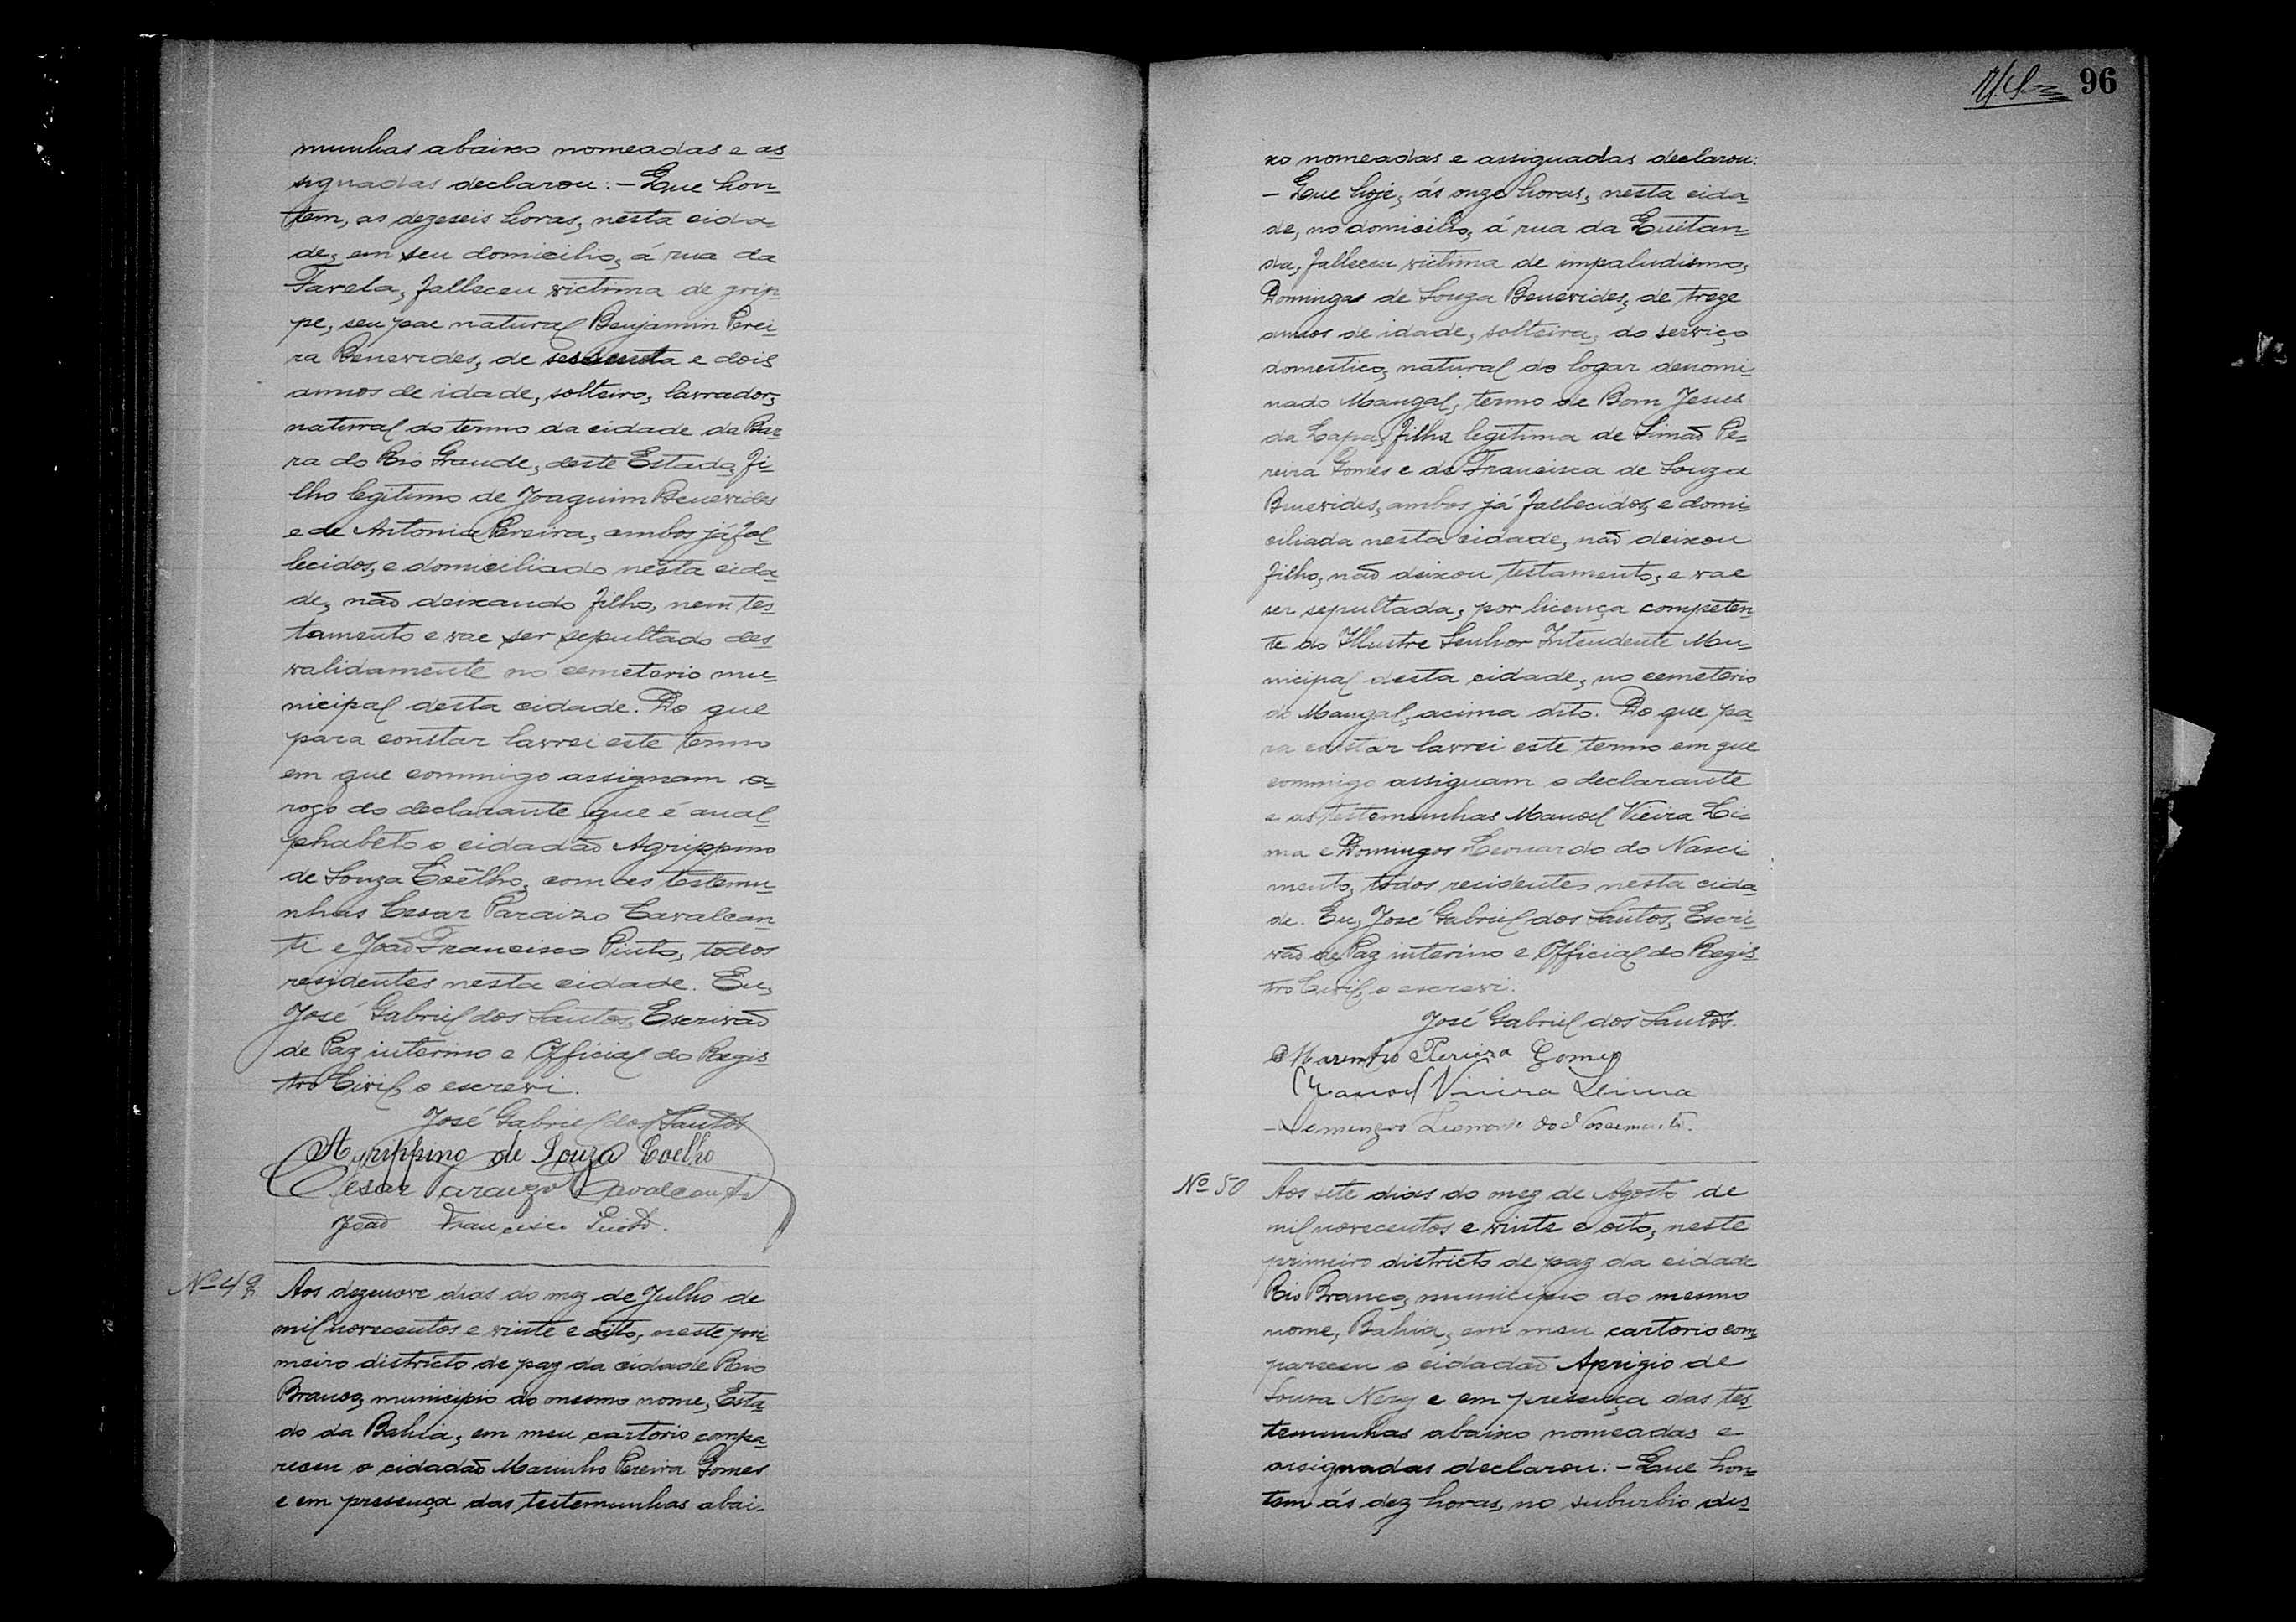 munhas abaixo nomeadas e as
signadas declarou: - Que hon
tem, as dezeseis horas, nesta cida
de, em seu domicilio, á rua da
Favela, falleceu victima de grip
pe, seu pae natural Benjamin Perei
ra Benevides, de sessenta e dois
annos de idade, solteiro, lavrador,
natural do termo da cidade da Bar
ra do Rio Grande, deste Estado, fi
lho legitimo de Joaquim Benevides
e de Antonia Pereira, ambos já fal
lecidos, e domiciliado nesta cida
de, não deixando filho, nem tes
tamento e vae ser sepultado des
validamente no cemeterio mu
nicipal desta cidade. Do que
para constar lavrei este termo
em que commigo assignam a
rogo do declarante que é anal
phabeto o cidadão Agrippino
de Souza Coêlho, com as testemu
nhas Cesar Paraizo Cavalcan
ti e João Francisco Pinto, todos
residentes nesta cidade. Eu,
José Gabriel dos Santos, Escrivão
de Paz interino e Official do Regis
tro Civil, o escrevi.
José Gabriel dos Santos
Agrippino de Souza Coelho
Cesar Paraizo Cavalcanti
João Francisco Pinto.
Nº 49 Aos dezenove dias do mez de Julho de
mil novecentos e vinte e oito, neste pri
meiro districto de paz da cidade Rio
Branco, municipio do mesmo nome, Esta
do da Bahia, em meu cartorio compa
receu o cidadão Marinho Pereira Gomes
e em presença das testemunhas abai-
96
xo nomeadas e assignadas declarou:
- Que hoje, ás onze horas, nesta cida
de, no domicilio, á rua da Quitan
da, falleceu victima de impaludismo,
Domingas de Souza Benevides, de treze
annos de idade, solteira, do serviço
domestico, natural do logar denomi
nado Mangal, termo de Bom Jesus
da Lapa, filha legitima de Simão Pe
reira Gomes e de Francisca de Souza
Benevides, ambos já fallecidos, e domi
ciliada nesta cidade, não deixou
filho, não deixou testamento, e vae
ser sepultada, por licença competen
te do Illustre Senhor Intendente Mu
nicipal desta cidade, no cemeterio
do Mangal, acima dito. Do que pa
ra constar lavrei este termo em que
commigo assignam o declarante
e as testemunhas Manoel Vieira Li
ma e Domingos Leonardo do Nasci
mento, todos residentes nesta cida
de. Eu, José Gabriel dos Santos, Escri
vão de Paz interino e Official do Regis
tro Civil, o escrevi.
José Gabriel dos Santos.
Marinho Pereira Gomes
Manoel Vieira Lima
Domingos Leonardo do Nascimento.
Nº 50 Aos sete dias do mez de Agosto de
mil novecentos e vinte e oito, neste
primeiro districto de paz da cidade
Rio Branco, municipio do mesmo
nome, Bahia, em meu cartorio com
pareceu o cidadão Aprigio de
Souza Nery e em presença das tes
temunhas abaixo nomeadas e
assignadas declarou: - Que hon
tem ás dez horas, no suburbio des